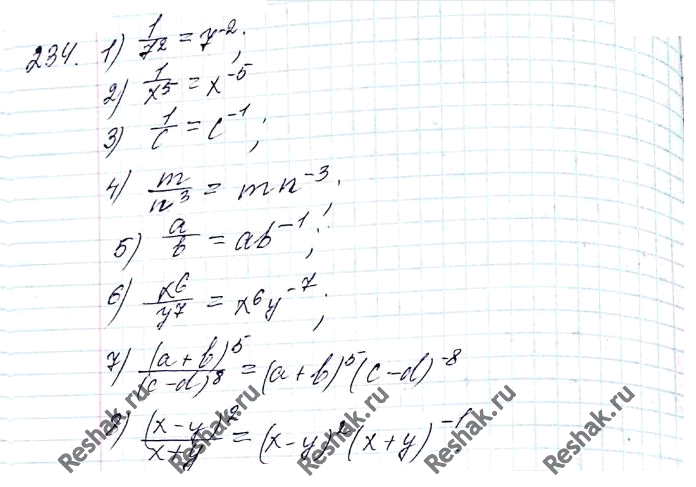 234. 1) 1/7² = 7⁻²;
2) 1/x⁵ = x⁻⁵
3) 1/c = c⁻¹;
4) m/n³ = mn⁻³;
5) a/b = ab⁻¹;
6) x⁶/y⁷ = x⁶y⁻⁷;
7) (a+b)⁵/(c-d)⁸ = (a+b)⁵(c-d)⁻⁸
8) (x-y)²/x+y = (x-y)²(x+y)⁻¹
Reshak.ru Reshak.ru Reshak.ru Reshak.ru Reshak.ru